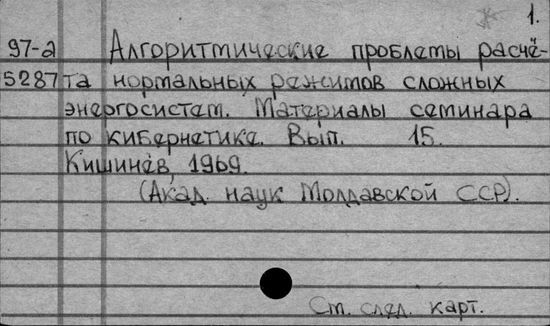 1.
97-2 Алгоритмические проблемы расчё-
5287 та нормальных режимов сложных
энергосистем. Материалы семинара
по кибернетике. Вып. 15.
Кишинёв, 1969.
(Акад. наук Молдавской ССР).
См. след. карт.